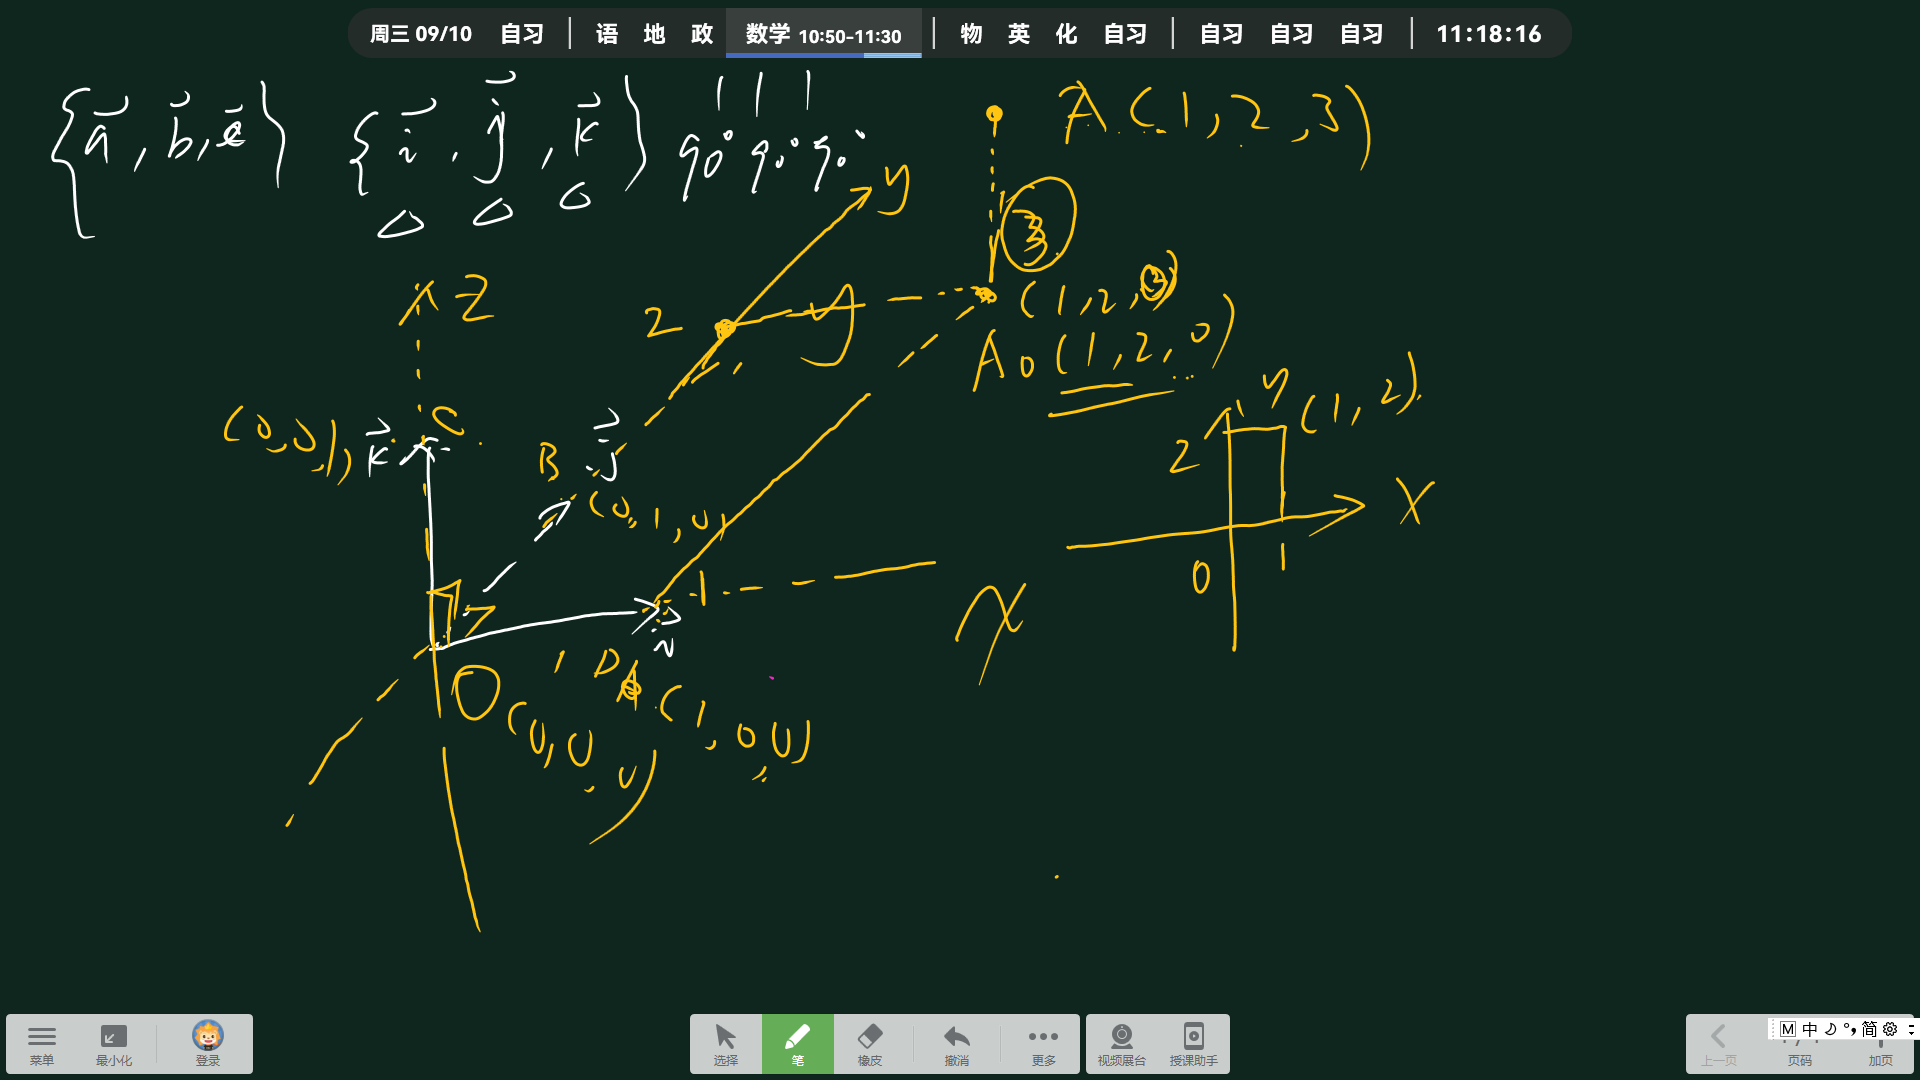 周三 09/10 自习 | 语 地 政 数学 10:50-11:30 | 物 英 化 自习 | 自习 自习 自习 | 11:18:16
{a, b, c} {i, j, k} 1 1 1
90° 90° 90°
A(1,2,3)
y
3
z
2
(1,2,3)
A0(1,2,0)
y
(1,2)
2
(0,0,1) k C
B j
(0,1,0)
x
0 1
1
x
i
1 D A (1,0,0)
O (0,0,0)
菜单 最小化 登录
选择 笔 橡皮 撤消 更多
视频展台 授课助手
上一页 页码 加页
M 中 简